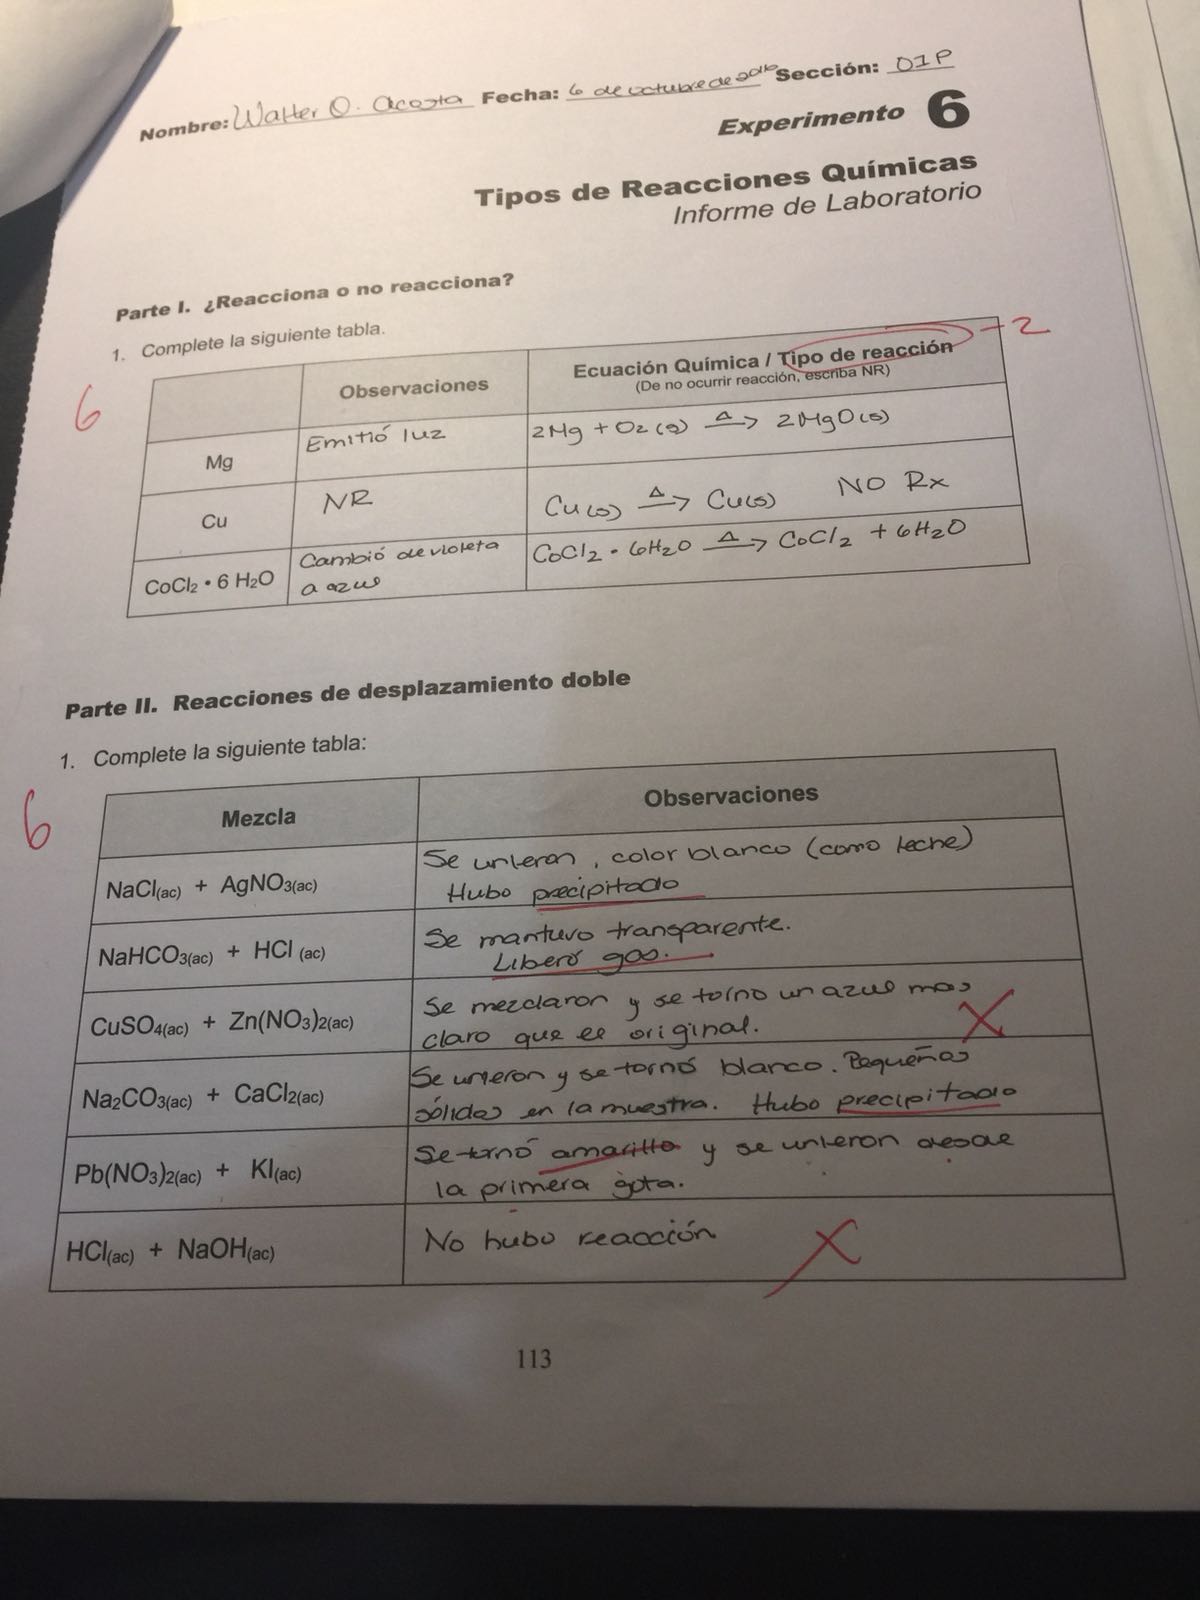 Nombre: Walter O. Acosta Fecha: 6 de octubre de 2016 Sección: 01P
Experimento 6
Tipos de Reacciones Químicas
Informe de Laboratorio
Parte I. ¿Reacciona o no reacciona?
1. Complete la siguiente tabla.
6
-2
Observaciones
Ecuación Química / Tipo de reacción
(De no ocurrir reacción, escriba NR)
Mg
Emitió luz
2Mg + O2(g) Δ→ 2MgO(s)
Cu
NR
Cu(s) Δ→ Cu(s) NO Rx
CoCl2 • 6 H2O
Cambió de violeta
a azul
CoCl2 • 6H2O Δ→ CoCl2 + 6H2O
Parte II. Reacciones de desplazamiento doble
1. Complete la siguiente tabla:
6
Mezcla
Observaciones
NaCl(ac) + AgNO3(ac)
Se unieron, color blanco (como leche)
Hubo precipitado
NaHCO3(ac) + HCl (ac)
Se mantuvo transparente.
Liberó gas.
CuSO4(ac) + Zn(NO3)2(ac)
Se mezclaron y se torno un azul mas
claro que el original.
X
Na2CO3(ac) + CaCl2(ac)
Se unieron y se tornó blanco. Pequeños
sólidos en la muestra. Hubo precipitado
Pb(NO3)2(ac) + KI(ac)
Se tornó amarillo y se unieron desde
la primera gota.
HCl(ac) + NaOH(ac)
No hubo reacción
X
113